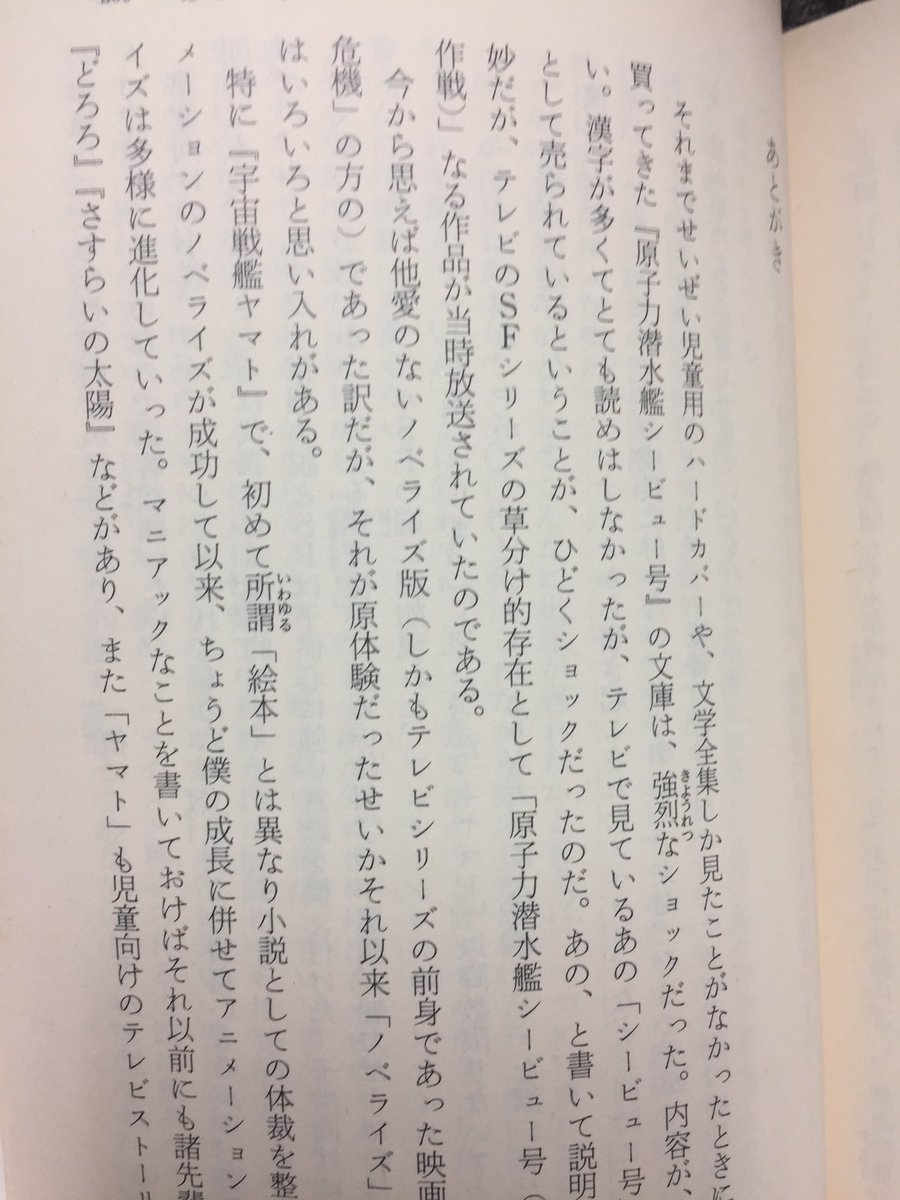 あとがき
それまでせいぜい児童用のハードカバーや、文学全集しか見たことがなかったときに
買ってきた『原子力潜水艦シービュー号』の文庫は、強烈なショックだった。内容が、
きようれつ
い。漢字が多くてとても読めはしなかったが、テレビで見ているあの「シービュー号
として売られているということが、ひどくショックだったのだ。あの、と書いて説明
妙だが、テレビのSFシリーズの草分け的存在として「原子力潜水艦シービュー号（
作戦）」なる作品が当時放送されていたのである。
今から思えば他愛のないノベライズ版（しかもテレビシリーズの前身であった映画
危機」の方の）であった訳だが、それが原体験だったせいかそれ以来「ノベライズ」
はいろいろと思い入れがある。
特に『宇宙戦艦ヤマト』で、初めて所謂「絵本」とは異なり小説としての体裁を整
いわゆる
メーションのノベライズが成功して以来、ちょうど僕の成長に併せてアニメーション
イズは多様に進化していった。マニアックなことを書いておけばそれ以前にも諸先輩
『どろろ』『さすらいの太陽』などがあり、また「ヤマト」も児童向けのテレビストーリ